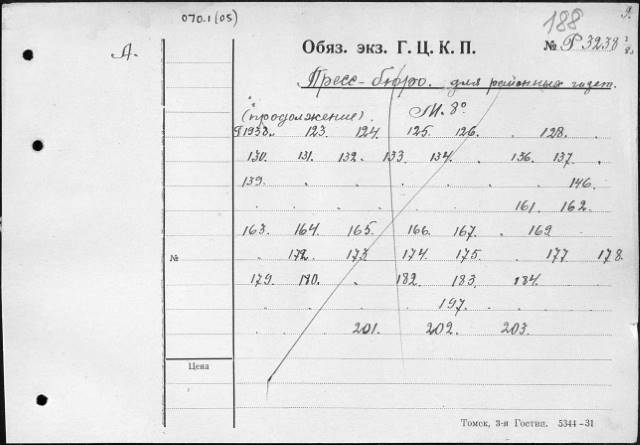 070.1 (05)
188
А.
Обяз. экз. Г. Ц. К. П.
№ Р3238
Пресс-бюро. для районных газет.
(продолжение). М. 8°
1938. 123. 124. 125. 126. . 128. .
130. 131. 132. 133. 134. . 136. 137. .
139. . . . . . . 146.
. . . . . 161. 162.
163. 164. 165. 166. 167. . 169
№ . 172. 173 174. 175. . 177 178.
179 180. . 182 183. 184.
. . . . 197. . .
. . 201. 202. 203. . .
Цена
Томск, 3-я Гостип. 5344-31